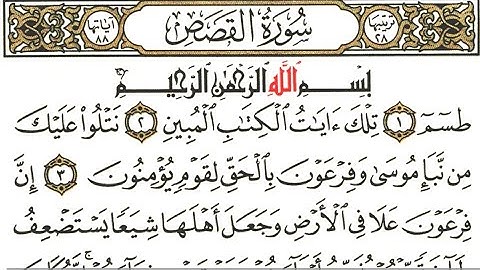 ترتيبها ٢٨ سُورَةُ القَصَصِ آياتها ٨٨
بِسْمِ اللَّهِ الرَّحْمَٰنِ الرَّحِيمِ
طسٓمٓ ١ تِلْكَ ءَايَٰتُ الْكِتَٰبِ الْمُبِينِ ٢ نَتْلُوا۟ عَلَيْكَ
مِن نَّبَإِ مُوسَىٰ وَفِرْعَوْنَ بِالْحَقِّ لِقَوْمٍ يُؤْمِنُونَ ٣ إِنَّ
فِرْعَوْنَ عَلَا فِى الْأَرْضِ وَجَعَلَ أَهْلَهَا شِيَعًا يَسْتَضْعِفُ